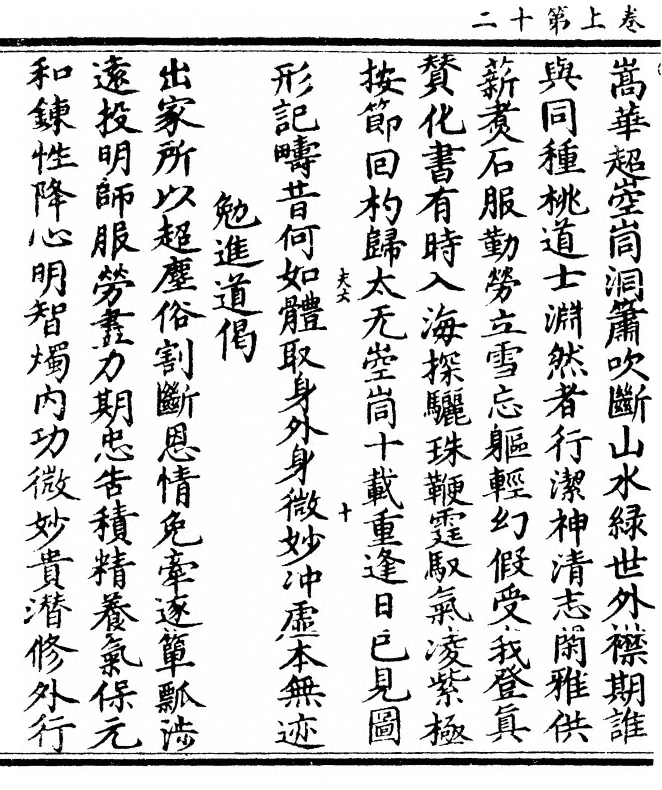 卷上第十二
嵩華超崆峝洞簫吹斷山水綠世外襟期誰
與同種桃道士淵然者行潔神清志閑雅供
薪煑石服勤勞立雪忘軀輕幻假受我登眞
贊化書有時入海探驪珠鞭霆馭氣凌紫極
按節回杓歸太无崆峝十載重逢日已見圖
夫六
十
形記疇昔何如體取身外身微妙冲虛本無迹
勉進道偈
出家所以超塵俗割斷恩情免牽逐簞瓢涉
遠投明師服勞盡力期忠告積精養氣保元
和鍊性降心明智燭內功微妙貴潛修外行